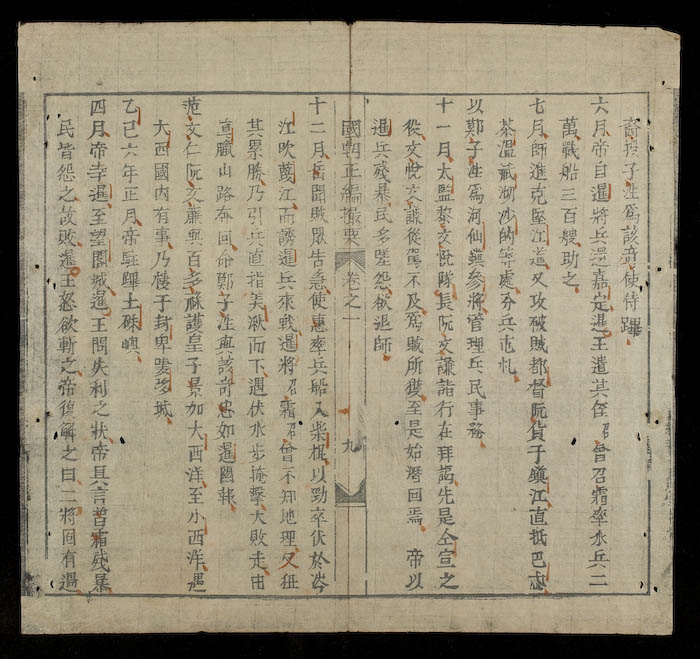 裔孫子洼爲該奇使侍蹕
六月帝自暹將兵還嘉定暹王遣其侄昭曾召霜率水兵二
萬戰船三百艘助之
七月師進克堅江道又攻破賊都督阮貨于鎮江直抵巴忒
茶溫瀝湖沙的等處分兵屯札
以鄭子洼爲河仙鎮參將管理兵民事務
十一月太監黎文 隊長阮文謙詣行在拜謁先是仝宣之
役文悅文謙從駕不及爲賊所獲至是始潛回焉 帝以
暹兵殘暴民多嗟怨欲退師
國朝正編撮要 卷之一 九
十二月岳聞賊眾告急使惠率兵船入柴棍以勁卒伏於岑
江吹蔑江而誘暹兵來戰暹將昭霜召曾不知地理又狃
其累勝乃引兵直指美湫而下遇伏水步掩擊大敗走由
真臘山路而回命鄭子洼與該奇忠如暹國報
范文仁阮文廉與百多祿護皇子景加大西洋至小西洋遇
大西國內有事乃棲于封卑黑城
乙巳六年正月帝駐蹕土硃嶼
四月帝幸暹至望閣城暹王問失利之狀帝具言曾霜殘暴
民皆怨之故敗暹王怒欲斬之帝復解之曰二將固有過